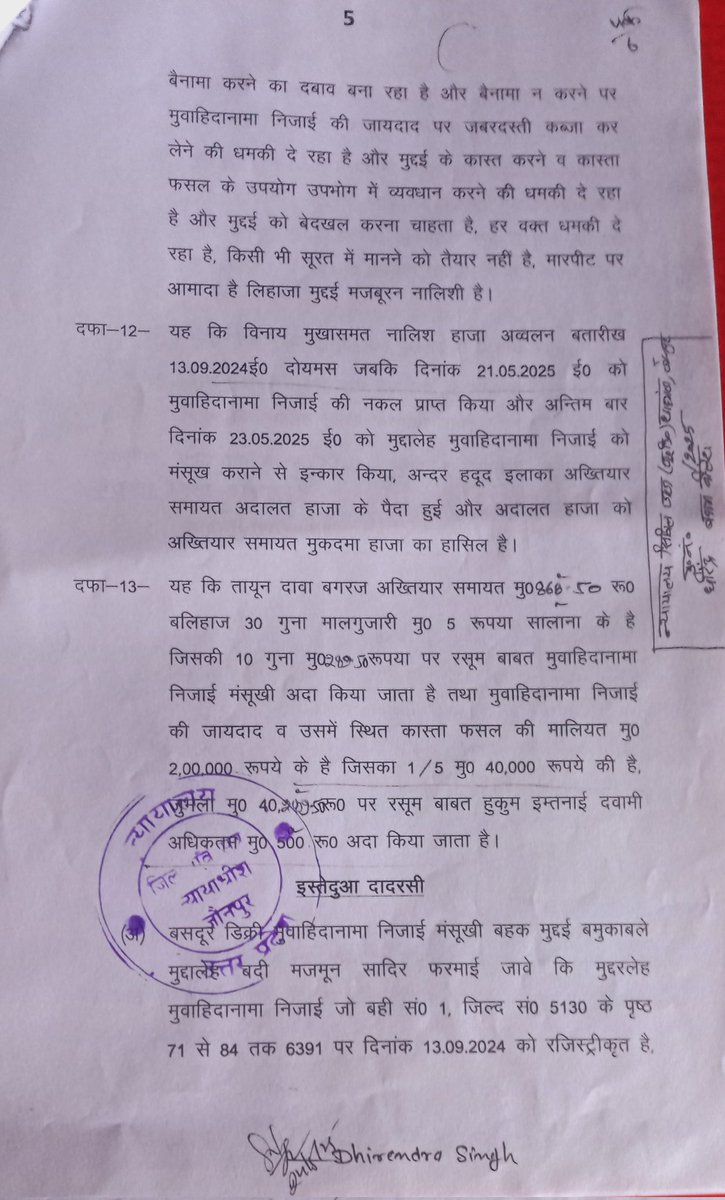 5
बैनामा करने का दबाव बना रहा है और बैनामा न करने पर
मुवाहिदानामा निजाई की जायदाद पर जबरदस्ती कब्जा कर
लेने की धमकी दे रहा है और मुद्दई के कास्त करने व कास्ता
फसल के उपयोग उपभोग में व्यवधान करने की धमकी दे रहा
है और मुद्दई को बेदखल करना चाहता है, हर वक्त धमकी दे
रहा है, किसी भी सूरत में मानने को तैयार नहीं है, मारपीट पर
आमादा है लिहाजा मुद्दई मजबूरन नालिशी है।
दफा–12– यह कि विनाय मुखासमत नालिश हाजा अव्वलन बतारीख
13.09.2024ई० दोयमस जबकि दिनांक 21.05.2025 ई० को
मुवाहिदानामा निजाई की नकल प्राप्त किया और अन्तिम बार
दिनांक 23.05.2025 ई० को मुद्दालेह मुवाहिदानामा निजाई को
मंसूख कराने से इन्कार किया, अन्दर हदूद इलाका अख्तियार
समायत अदालत हाजा के पैदा हुई और अदालत हाजा को
अख्तियार समायत मुकदमा हाजा का हासिल है।
दफा–13– यह कि तायून दावा बगरज अख्तियार समायत मु० रू०
बलिहाज 30 गुना मालगुजारी मु० 5 रूपया सालाना के है
जिसकी 10 गुना मु० रूपया पर रसूम बाबत मुवाहिदानामा
निजाई मंसूखी अदा किया जाता है तथा मुवाहिदानामा निजाई
की जायदाद व उसमें स्थित कास्ता फसल की मालियत मु०
2,00,000 रूपये के है जिसका 1/5 मु० 40,000 रूपये की है,
जुमला मु० रू० पर रसूम बाबत हुकुम इम्तनाई दवामी
अधिकतम मु० 500 रू० अदा किया जाता है।
इस्तेदुआ दादरसी
(अ) बसदूर डिक्री मुवाहिदानामा निजाई मंसूखी बहक मुद्दई बमुकाबले
मुद्दालेह बदी मजमून सादिर फरमाई जावे कि मुद्दरलेह
मुवाहिदानामा निजाई जो बही सं० 1, जिल्द सं० 5130 के पृष्ठ
71 से 84 तक 6391 पर दिनांक 13.09.2024 को रजिस्ट्रीकृत है,
न्यायालय
न्यायाधीश
जौनपुर
उत्तर प्रदेश
न्यायालय सिविल जज
/2025
Dhirendra Singh